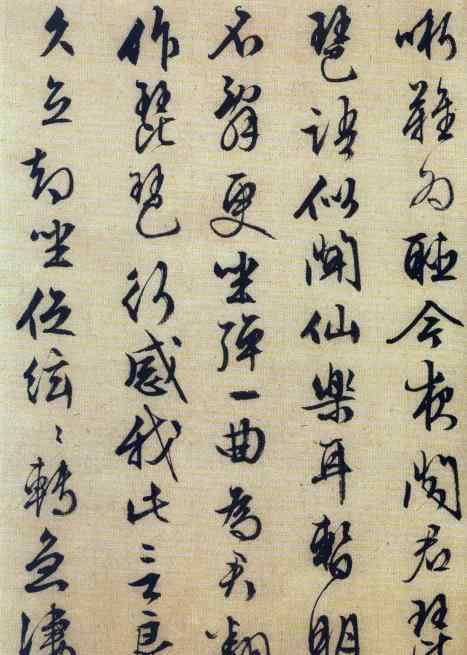 哳難為聽今夜聞君琵
琶語似聞仙樂耳暫明
不辭更坐彈一曲為君翻
作琵琶行感我此言良
久立却坐促絃〻轉急淒